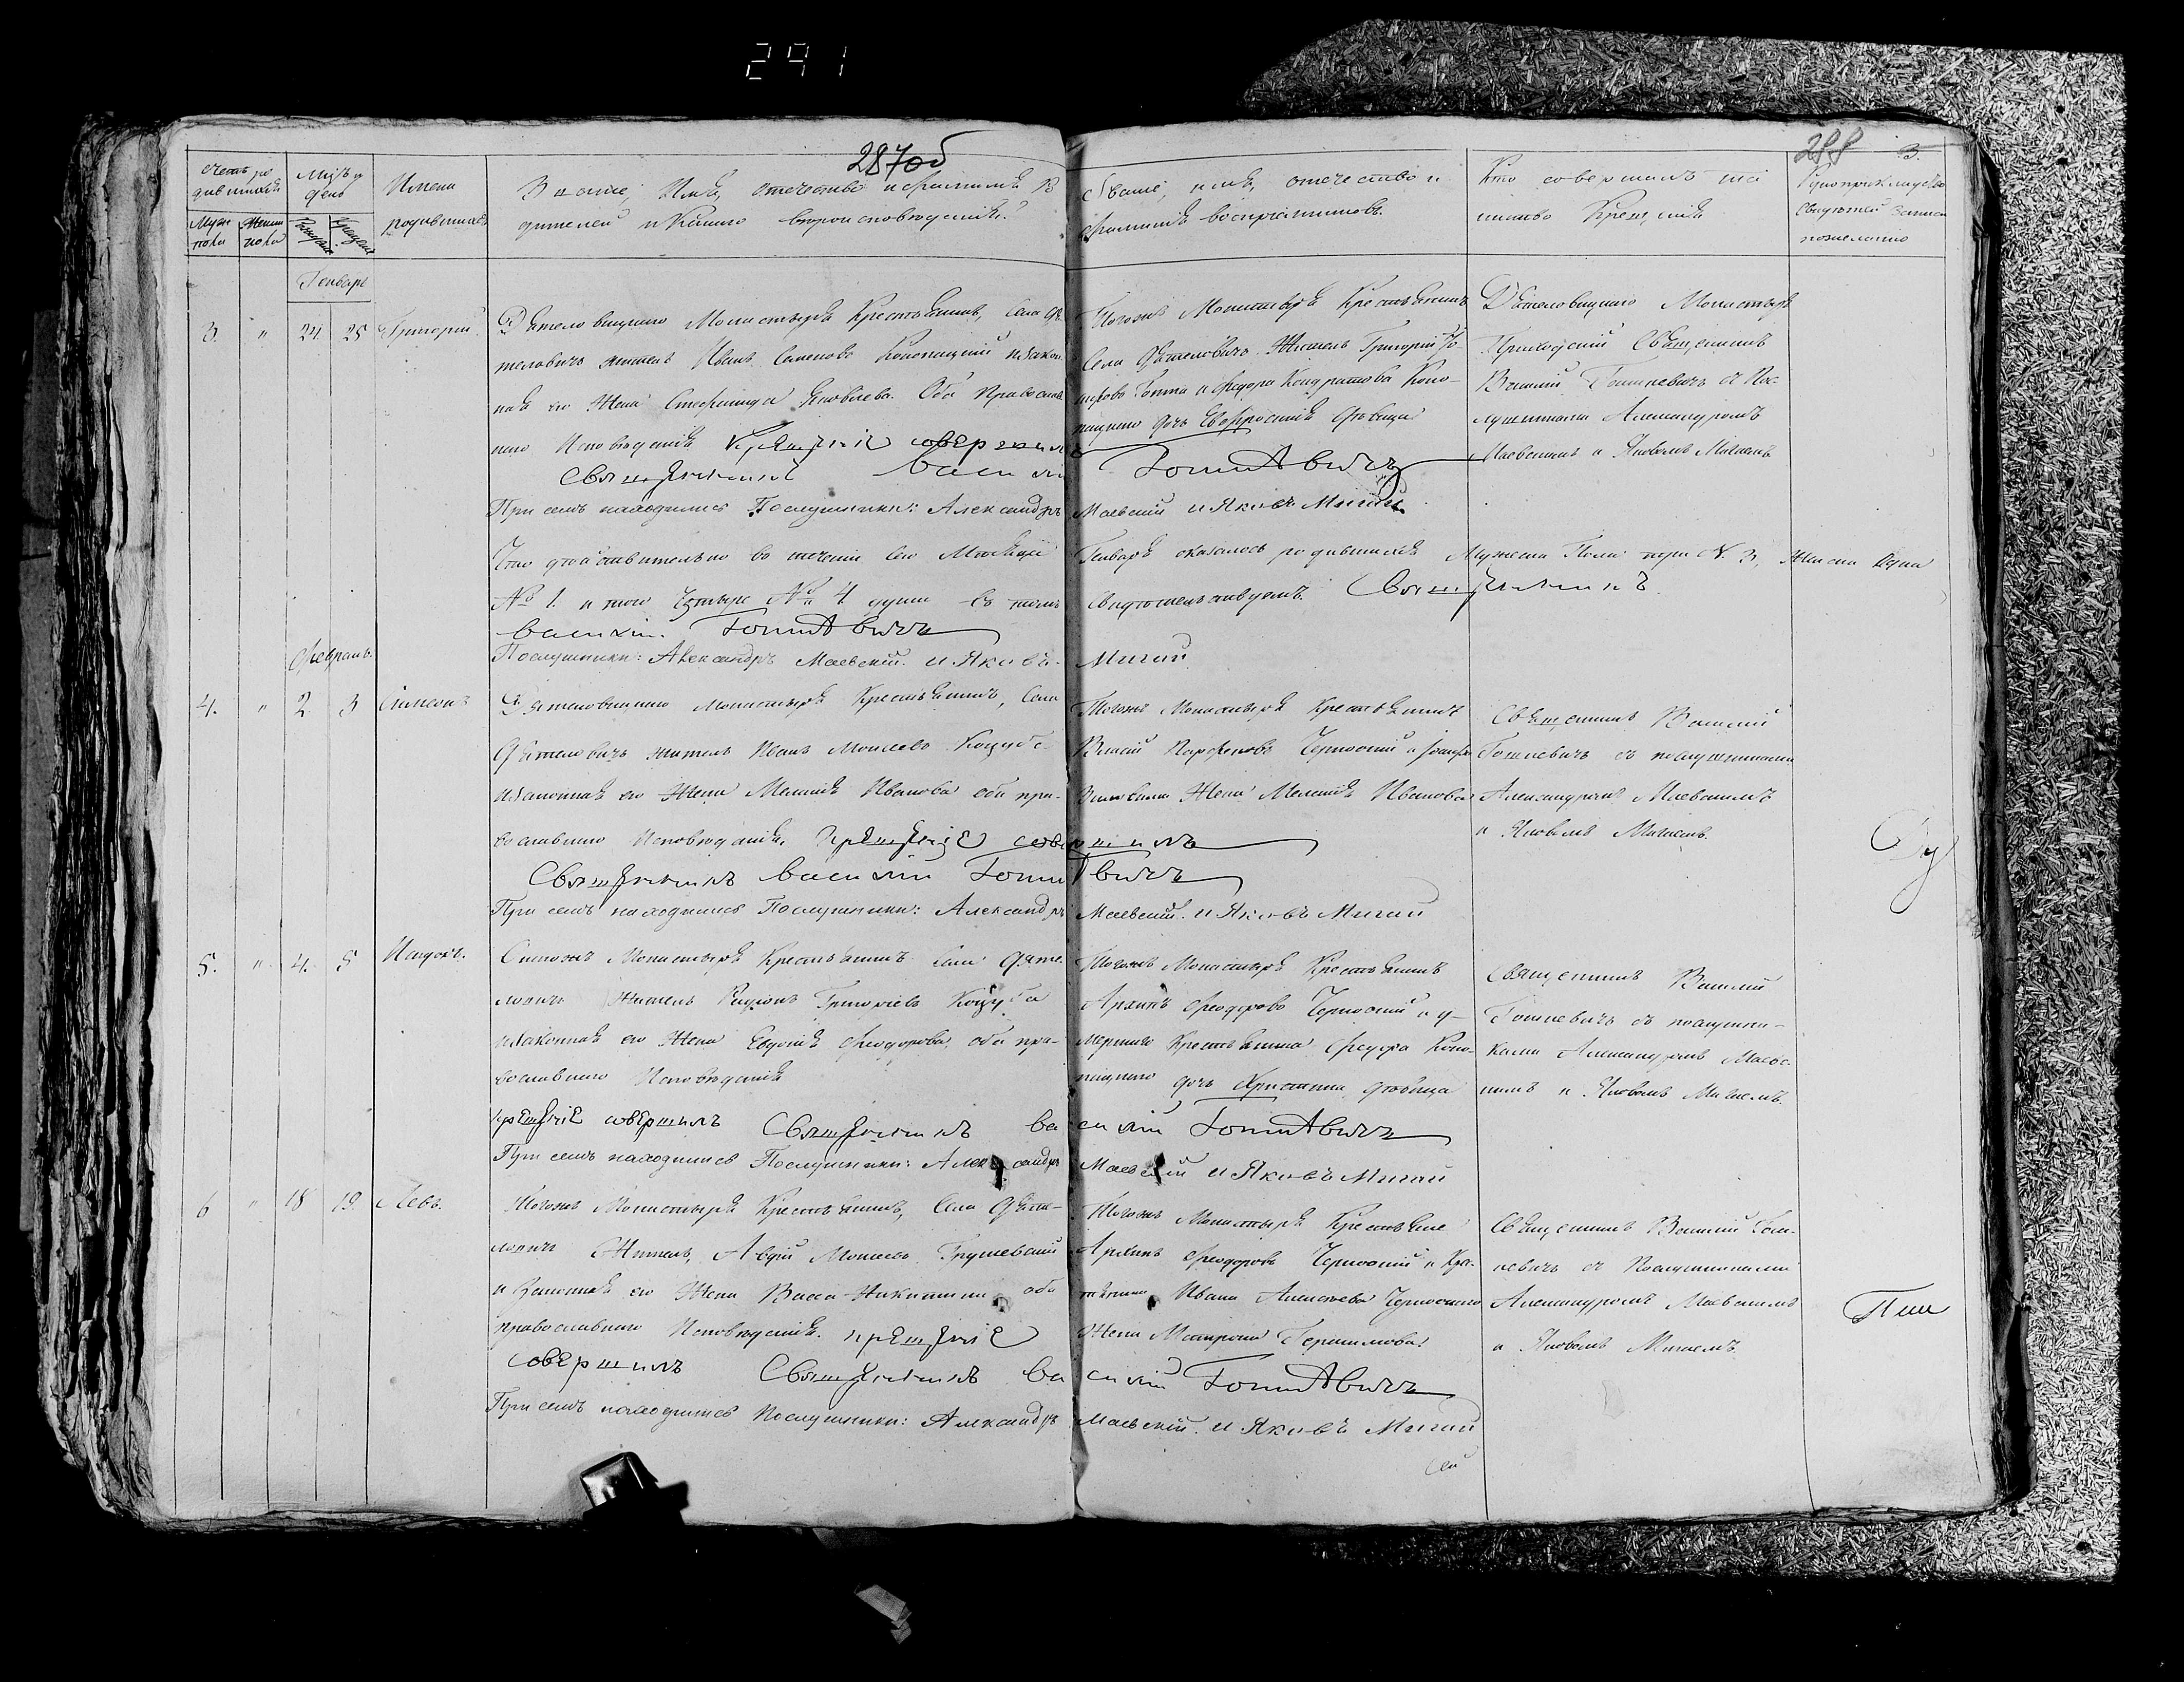 291
287об
288
3.
Счетъ ро
дившихся
Муж
пола
Женск
пола
Мцъ и
день
Рожденія
Крещенія
Имена
родившихся
Званіе, Имя, отечество и фамилія Ро
дителей и какого вероисповеданія.
Званіе, имя, отечество и
фамилія воспріемниковъ.
Кто совершалъ таи
нство Крещенія
Рукоприкладство
свидетелей записи
по желанію
Генварь
3. " 24 25 Григорій
Дятеловицкаго Монастыря Крестьянинъ, Села Дя
теловичъ житель Иванъ Семеновъ Конопацкій и закон
ная его Жена Стефанида Яковлева. Оба Православ
наго Исповеданія Крещеніе совершилъ
Священникъ Василій Гомолевичъ
При семъ находились Послушники: Александръ Маевскій и Яковъ Мигай
Тогожъ Монастыря Крестьянинъ
Села Дятеловичъ Житель Григорій
и Федора Кондратова Коно-
пацкаго дочь Евфросинія девица
Дятеловицкаго Монастыря
Приходскій Священникъ
Василій съ Пос
лушниками Александромъ
Маевскимъ и Яковомъ Мигаемъ
Что действительно въ теченіи сего Месяца Генваря оказалось родившихся Мужеска Пола при N. 3, Женска Одна
№ 1. и того Четыре № 4 души въ томъ свидетельствуемъ. Священникъ
Василій.
Послушники: Александръ Маевскій. и Яковъ Мигай
Февраль.
4. " 2 3 Симеонъ
Дятеловицкаго Монастыря Крестьянинъ, Села
Дятеловичъ житель Иванъ Моисеевъ Коцуба
и законная его Жена Меланія Иванова оба пра-
вославнаго Исповеданія, Крещеніе совершилъ
Священникъ Василій
При семъ находились Послушники: Александръ Маевскій. и Яковъ Мигай
Тогожъ Монастыря Крестьянинъ
Власій Парфеновъ Черноокій и
Жена Меланія Иванова
Священникъ Василій
съ послушниками
Александромъ Маевскимъ
и Яковомъ Мигаемъ.
Ду
5. " 4. 5
Монастыря Крестьянинъ Села Дяте
ловичъ Житель Григоріевъ Коцуба
и законная его Жена Евдокія Феодорова, оба пра-
вославнаго Исповеданія
Крещеніе совершилъ Священникъ Василій
При семъ находились Послушники: Александръ Маевскій и Яковъ Мигай
Тогожъ Монастыря Крестьянинъ
Архипъ Феодоровъ Черноокій и у-
мершаго Крестьянина Федора Коно-
пацкаго дочь Христина девица
Священникъ Василій
съ послушни-
ками Александромъ Маевс
кимъ и Яковомъ Мигаемъ.
6 " 18 19. Левъ.
Тогожъ Монастыря Крестьянинъ, Села Дяте-
ловичъ Житель, Авдій Моисеевъ Грушевскій
и Законная его Жена Васса Никитина оба
православнаго Исповеданія. Крещеніе
совершилъ Священникъ Василій
При семъ находились Послушники: Александръ Маевскій. и Яковъ Мигай
Тогожъ Монастыря Крестьяне
Архипъ Феодоровъ Черноокій и Крес
тьянина Ивана Алексеева Черноокаго
Жена Матрона Герасимова.
Священникъ Василій
съ Послушниками
Александромъ Маевскимъ
и Яковомъ Мигаемъ.